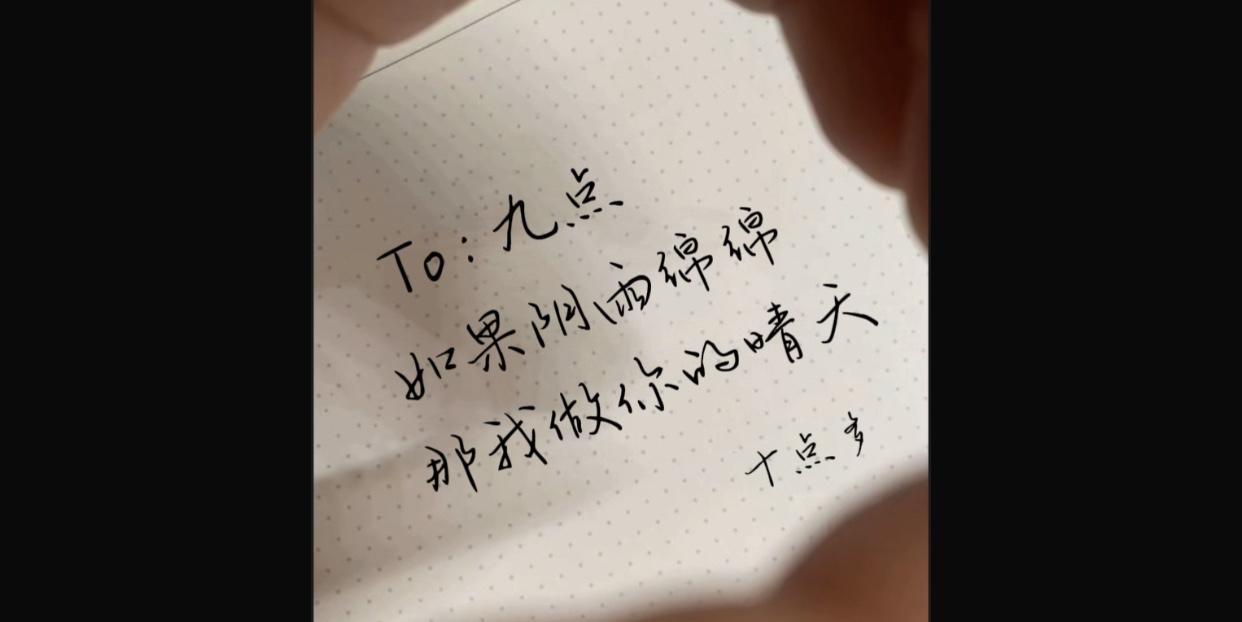 To：九点
如果阴雨绵绵
那我做你的晴天
十点多